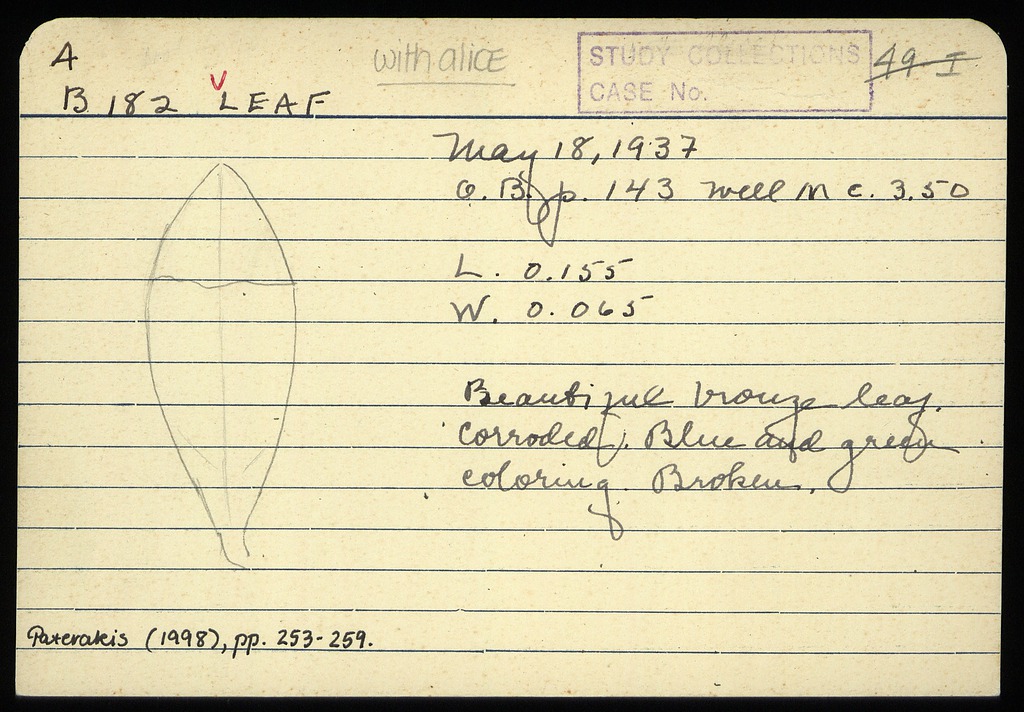 A
with alice
STUDY COLLECTIONS
CASE No.
49-I
B 182 LEAF
May 18, 1937
O. B. p. 143 Well M c. 3.50
L. 0.155
W. 0.065
Beautiful bronze leaf.
Corroded. Blue and green
coloring. Broken.
Paterakis (1998), pp. 253-259.